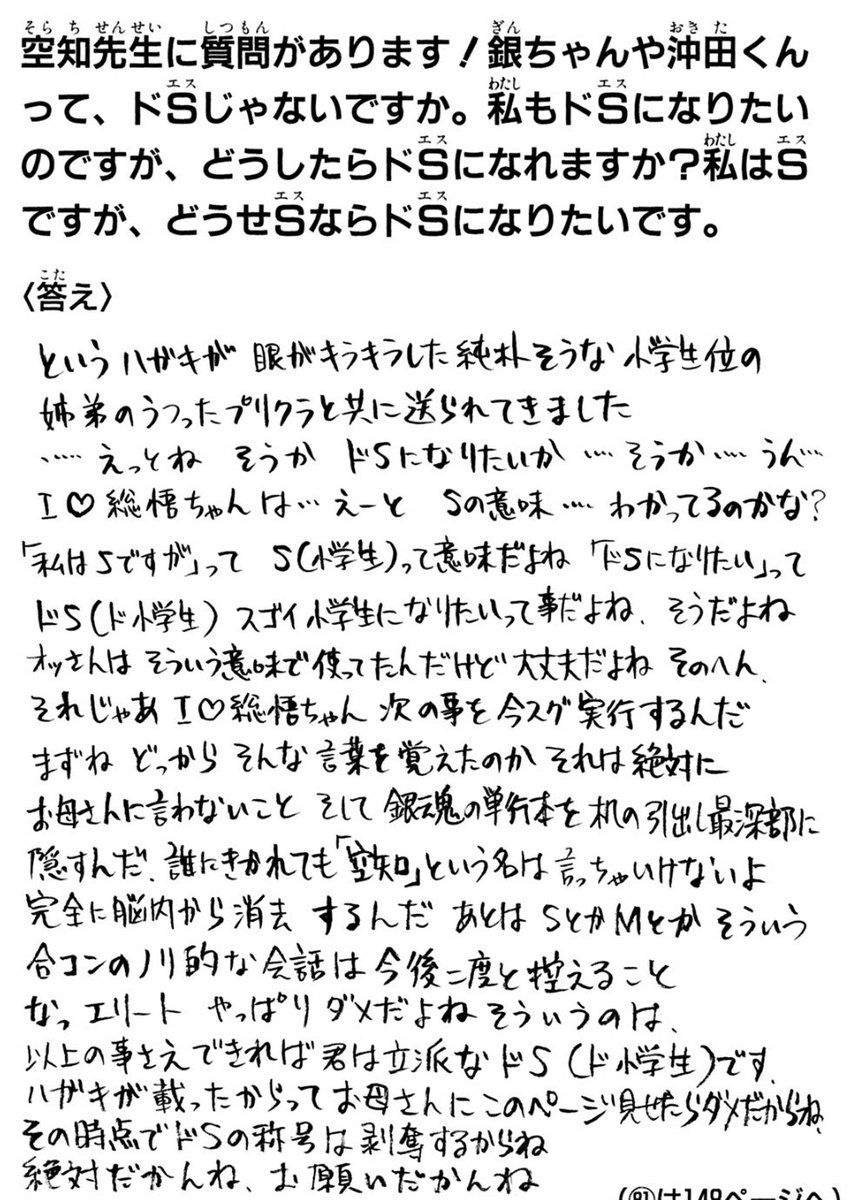 空知先生に質問があります!銀ちゃんや沖田くん
って、ドSじゃないですか。私もドSになりたい
のですが、どうしたらドSになれますか?私はS
ですが、どうせSならドSになりたいです。
〈答え〉
というハガキが 眼がキラキラした純朴そうな 小学生位の
姉弟のうつったプリクラと共に送られてきました
…… えっとね そうか ドSになりたいか …… そうか …… うん…
I♡総悟ちゃんは… えーと Sの意味 …… わかってるのかな?
「私はSですが」って S(小学生)って意味だよね 「ドSになりたい」って
ドS(ド小学生) スゴイ小学生になりたいって事だよね、そうだよね
オッさんは そういう意味で使ってたんだけど 大丈夫だよね そのへん、
それじゃあ I♡総悟ちゃん 次の事を今スグ実行するんだ
まずね どっから そんな言葉を覚えたのか それは絶対に
お母さんに言わないこと そして 銀魂の単行本を机の引出し最深部に
隠すんだ、誰にきかれても「空知」という名は言っちゃいけないよ
完全に脳内から消去 するんだ あとは SとかMとか そういう
合コンのノリ的な会話は今後二度と控えること
なっ エリート やっぱり ダメだよねそういうのは、
以上の事さえできれば君は立派な ドS (ド小学生)です、
ハガキが載ったからって お母さんに このページ見せたらダメだからね、
その時点でドSの称号は剥奪するからね
絶対だかんね、お願いだかんね
(91は148ページへ)